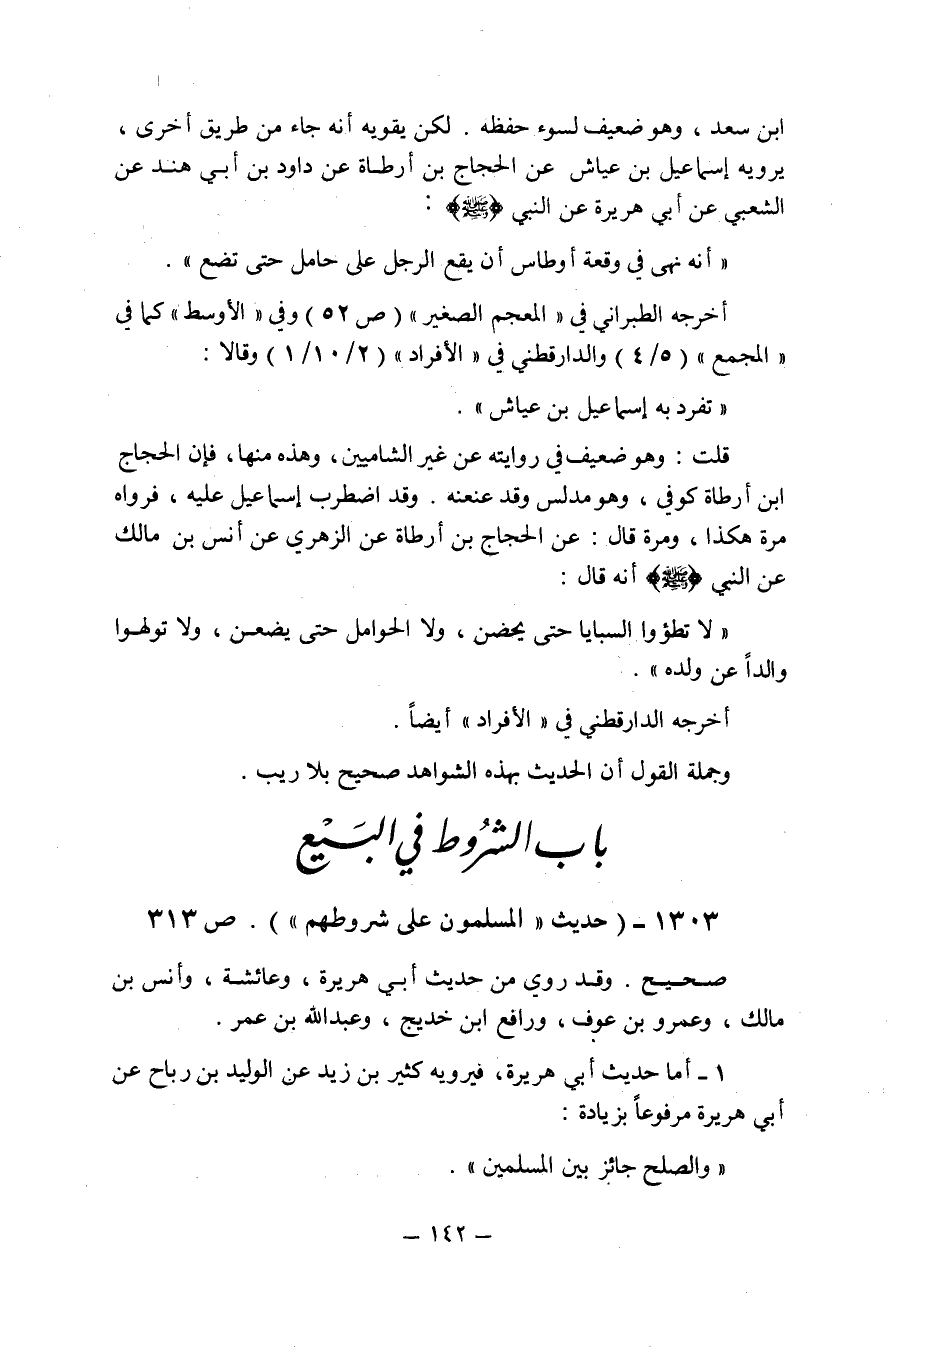 ابن سعد ، وهو ضعيف لسوء حفظه . لكن يقويه أنه جاء من طريق أخرى ،
يرويه إسماعيل بن عياش عن الحجاج بن أرطاة عن داود بن أبي هند عن
الشعبي عن أبي هريرة عن النبي ﴿ﷺ﴾ :
« أنه نهى في وقعة أوطاس أن يقع الرجل على حامل حتى تضع » .
أخرجه الطبراني في « المعجم الصغير » ( ص ٥٢ ) وفي « الأوسط » كما في
« المجمع » ( ٥/ ٤ ) والدارقطني في « الأفراد » ( ٢/ ١٠/ ١ ) وقالا :
« تفرد به إسماعيل بن عياش » .
قلت : وهو ضعيف في روايته عن غير الشاميين ، وهذه منها ، فإن الحجاج
ابن أرطاة كوفي ، وهو مدلس وقد عنعنه . وقد اضطرب إسماعيل عليه ، فرواه
مرة هكذا ، ومرة قال : عن الحجاج بن أرطاة عن الزهري عن أنس بن مالك
عن النبي ﴿ﷺ﴾ أنه قال :
« لا تطؤوا السبايا حتى يحضن ، ولا الحوامل حتى يضعن ، ولا تولهوا
والداً عن ولده » .
أخرجه الدارقطني في « الأفراد » أيضاً .
وجملة القول أن الحديث بهذه الشواهد صحيح بلا ريب .
باب الشُروط في البَيْع
١٣٠٣ ـ ( حديث « المسلمون على شروطهم » ) . ص ٣١٣
صحيح . وقد روي من حديث أبي هريرة ، وعائشة ، وأنس بن
مالك ، وعمرو بن عوف ، ورافع ابن خديج ، وعبدالله بن عمر .
١ ـ أما حديث أبي هريرة ، فيرويه كثير بن زيد عن الوليد بن رباح عن
أبي هريرة مرفوعاً بزيادة :
« والصلح جائز بين المسلمين » .
– ١٤٢ –